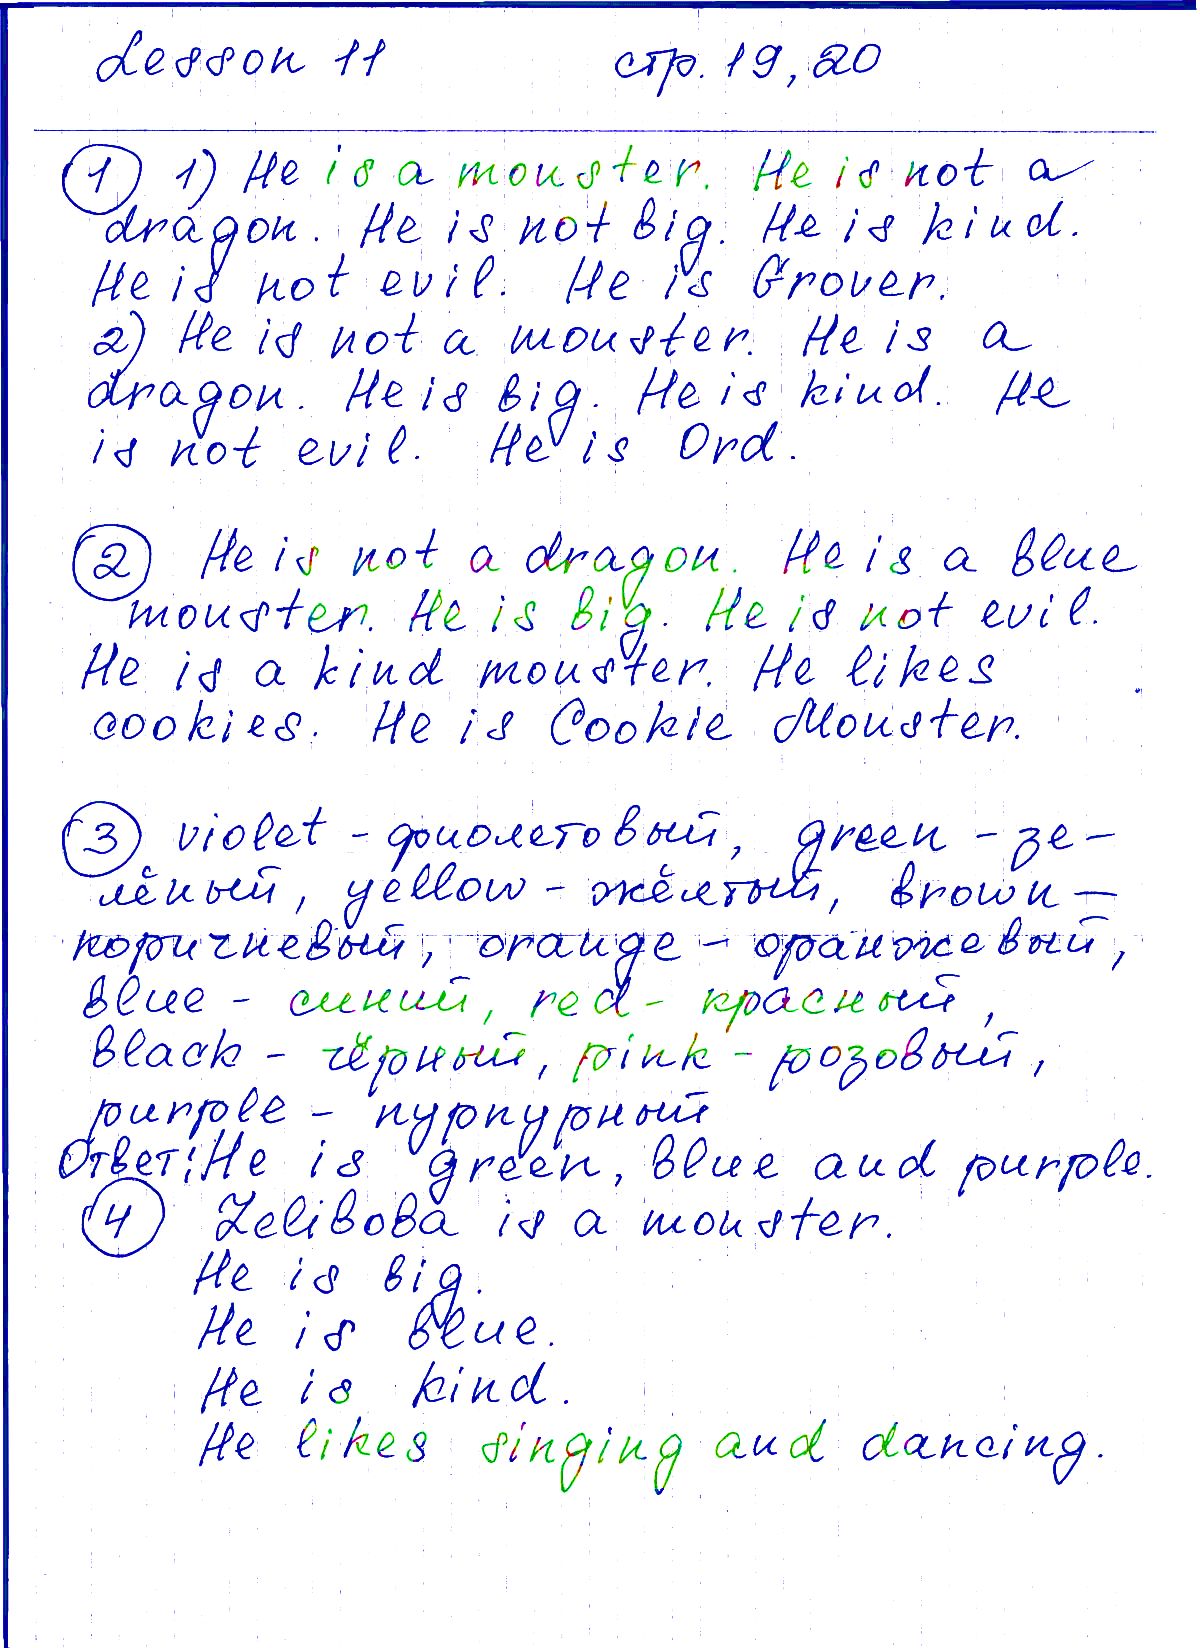 Lesson 11 стр. 19, 20
1 1) He is a monster. He is not a
dragon. He is not big. He is kind.
He is not evil. He is Grover.
2) He is not a monster. He is a
dragon. He is big. He is kind. He
is not evil. He is Ord.
2 He is not a dragon. He is a blue
monster. He is big. He is not evil.
He is a kind monster. He likes
cookies. He is Cookie Monster.
3 violet - фиолетовый, green - зе-
лёный, yellow - жёлтый, brown -
коричневый, orange - оранжевый,
blue - синий, red - красный,
black - чёрный, pink - розовый,
purple - пурпурный
Ответ: He is green, blue and purple.
4 Zeliboba is a monster.
He is big.
He is blue.
He is kind.
He likes singing and dancing.